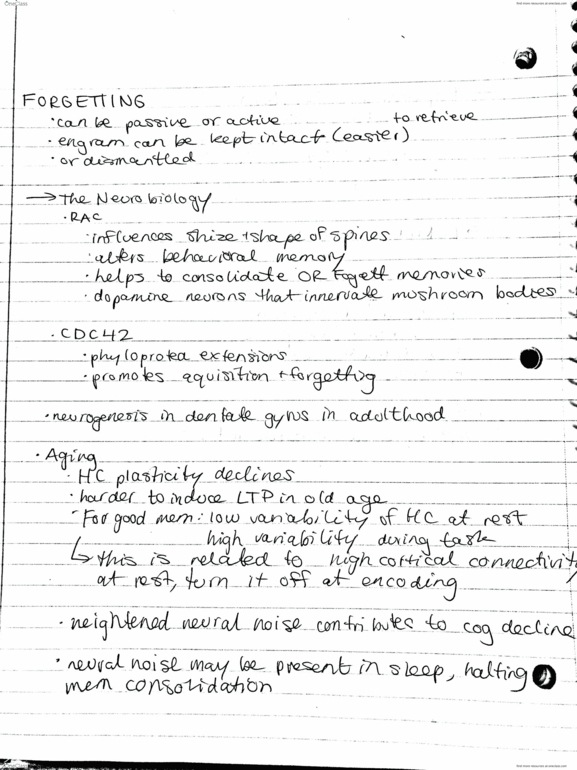 OneClass
FORGETTING
• can be passive or active
to retrieve
• engram can be kept intact (easier)
• or dismantled
→ The Neurobiology
• RAC
• influences shize + shape of spines
• alters behavioral memory
• helps to consolidate OR fogett memories
• dopamine neurons that innervate mushroom bodies
• CDC42
• phyloprotea extensions
• promotes aquisition + forgetting
• neurogenesis in dentate gyrus in adulthood
• Aging
• HC plasticity declines
• harder to induce LTP in old age
• For good mem: low variability of HC at rest
high variability during task
↳ this is related to high cortical connectivity
at rest, turn it off at encoding
• heightened neural noise contributes to cog decline
• neural noise may be present in sleep, halting
mem consolidation